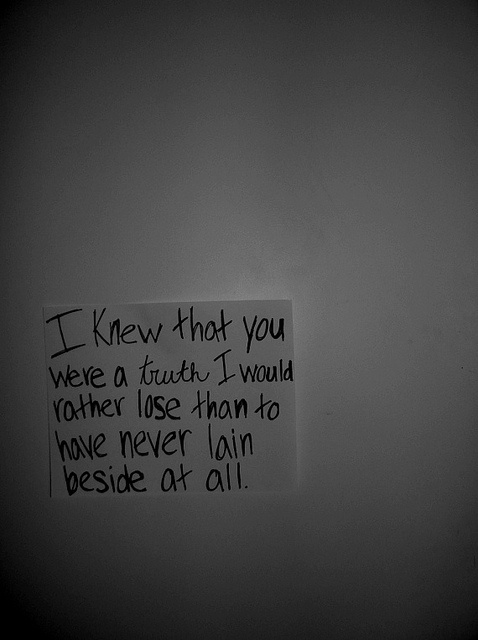 I Knew that you
were a truth I would
rather lose than to
have never lain
beside at all.